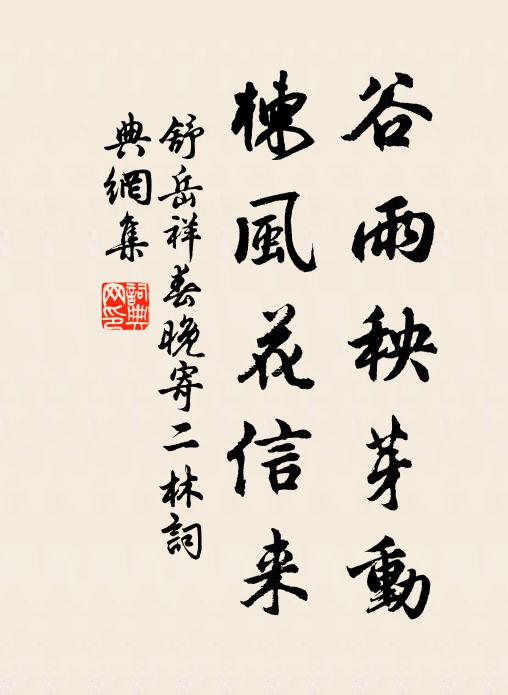 谷雨秧芽動
楝風花信来
舒岳祥春晚寄二林詞
典網集
詞典网印